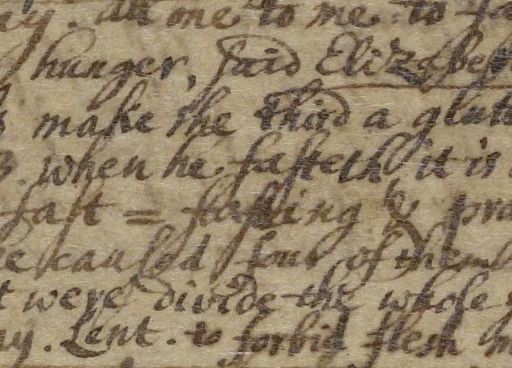 y. All one to me. to fa
hunger, said Elizabet
make the third a glut
when he fasteth it is
fast = fasting & pra
he caused four of them
t were divide the whole y
ay. Lent. to forbid flesh m